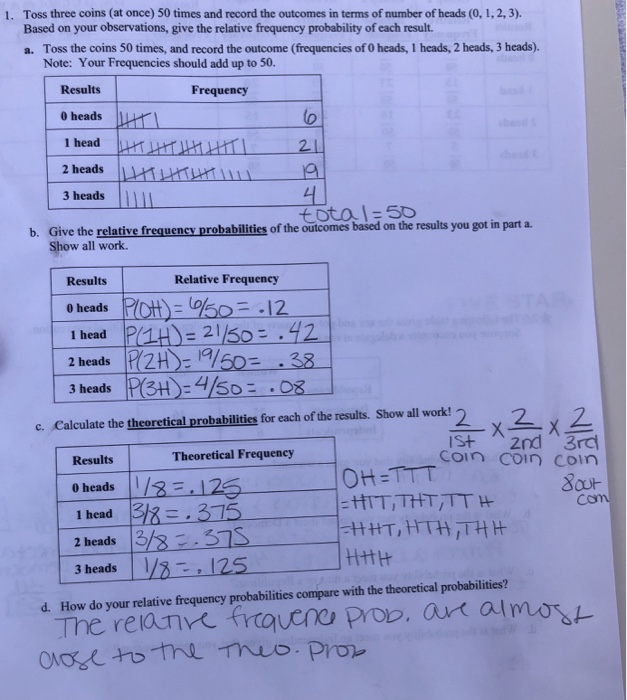 1. Toss three coins (at once) 50 times and record the outcomes in terms of number of heads (0, 1, 2, 3).
Based on your observations, give the relative frequency probability of each result.
a. Toss the coins 50 times, and record the outcome (frequencies of 0 heads, 1 heads, 2 heads, 3 heads).
Note: Your Frequencies should add up to 50.
Results Frequency
0 heads 6
1 head 21
2 heads 19
3 heads 4
total=50
b. Give the relative frequency probabilities of the outcomes based on the results you got in part a.
Show all work.
Results Relative Frequency
0 heads P(0H)=6/50=.12
1 head P(1H)=21/50=.42
2 heads P(2H)=19/50=.38
3 heads P(3H)=4/50=.08
c. Calculate the theoretical probabilities for each of the results. Show all work!
2 x 2 x 2
1st 2nd 3rd
coin coin coin
8 out
com
Results Theoretical Frequency
0 heads 1/8=.125 0H=TTT
1 head 3/8=.375 =HTT,THT,TTH
2 heads 3/8=.375 =HHT,HTH,THH
3 heads 1/8=.125 HHH
d. How do your relative frequency probabilities compare with the theoretical probabilities?
The relative frequence prob. are almost
close to the theo. prob